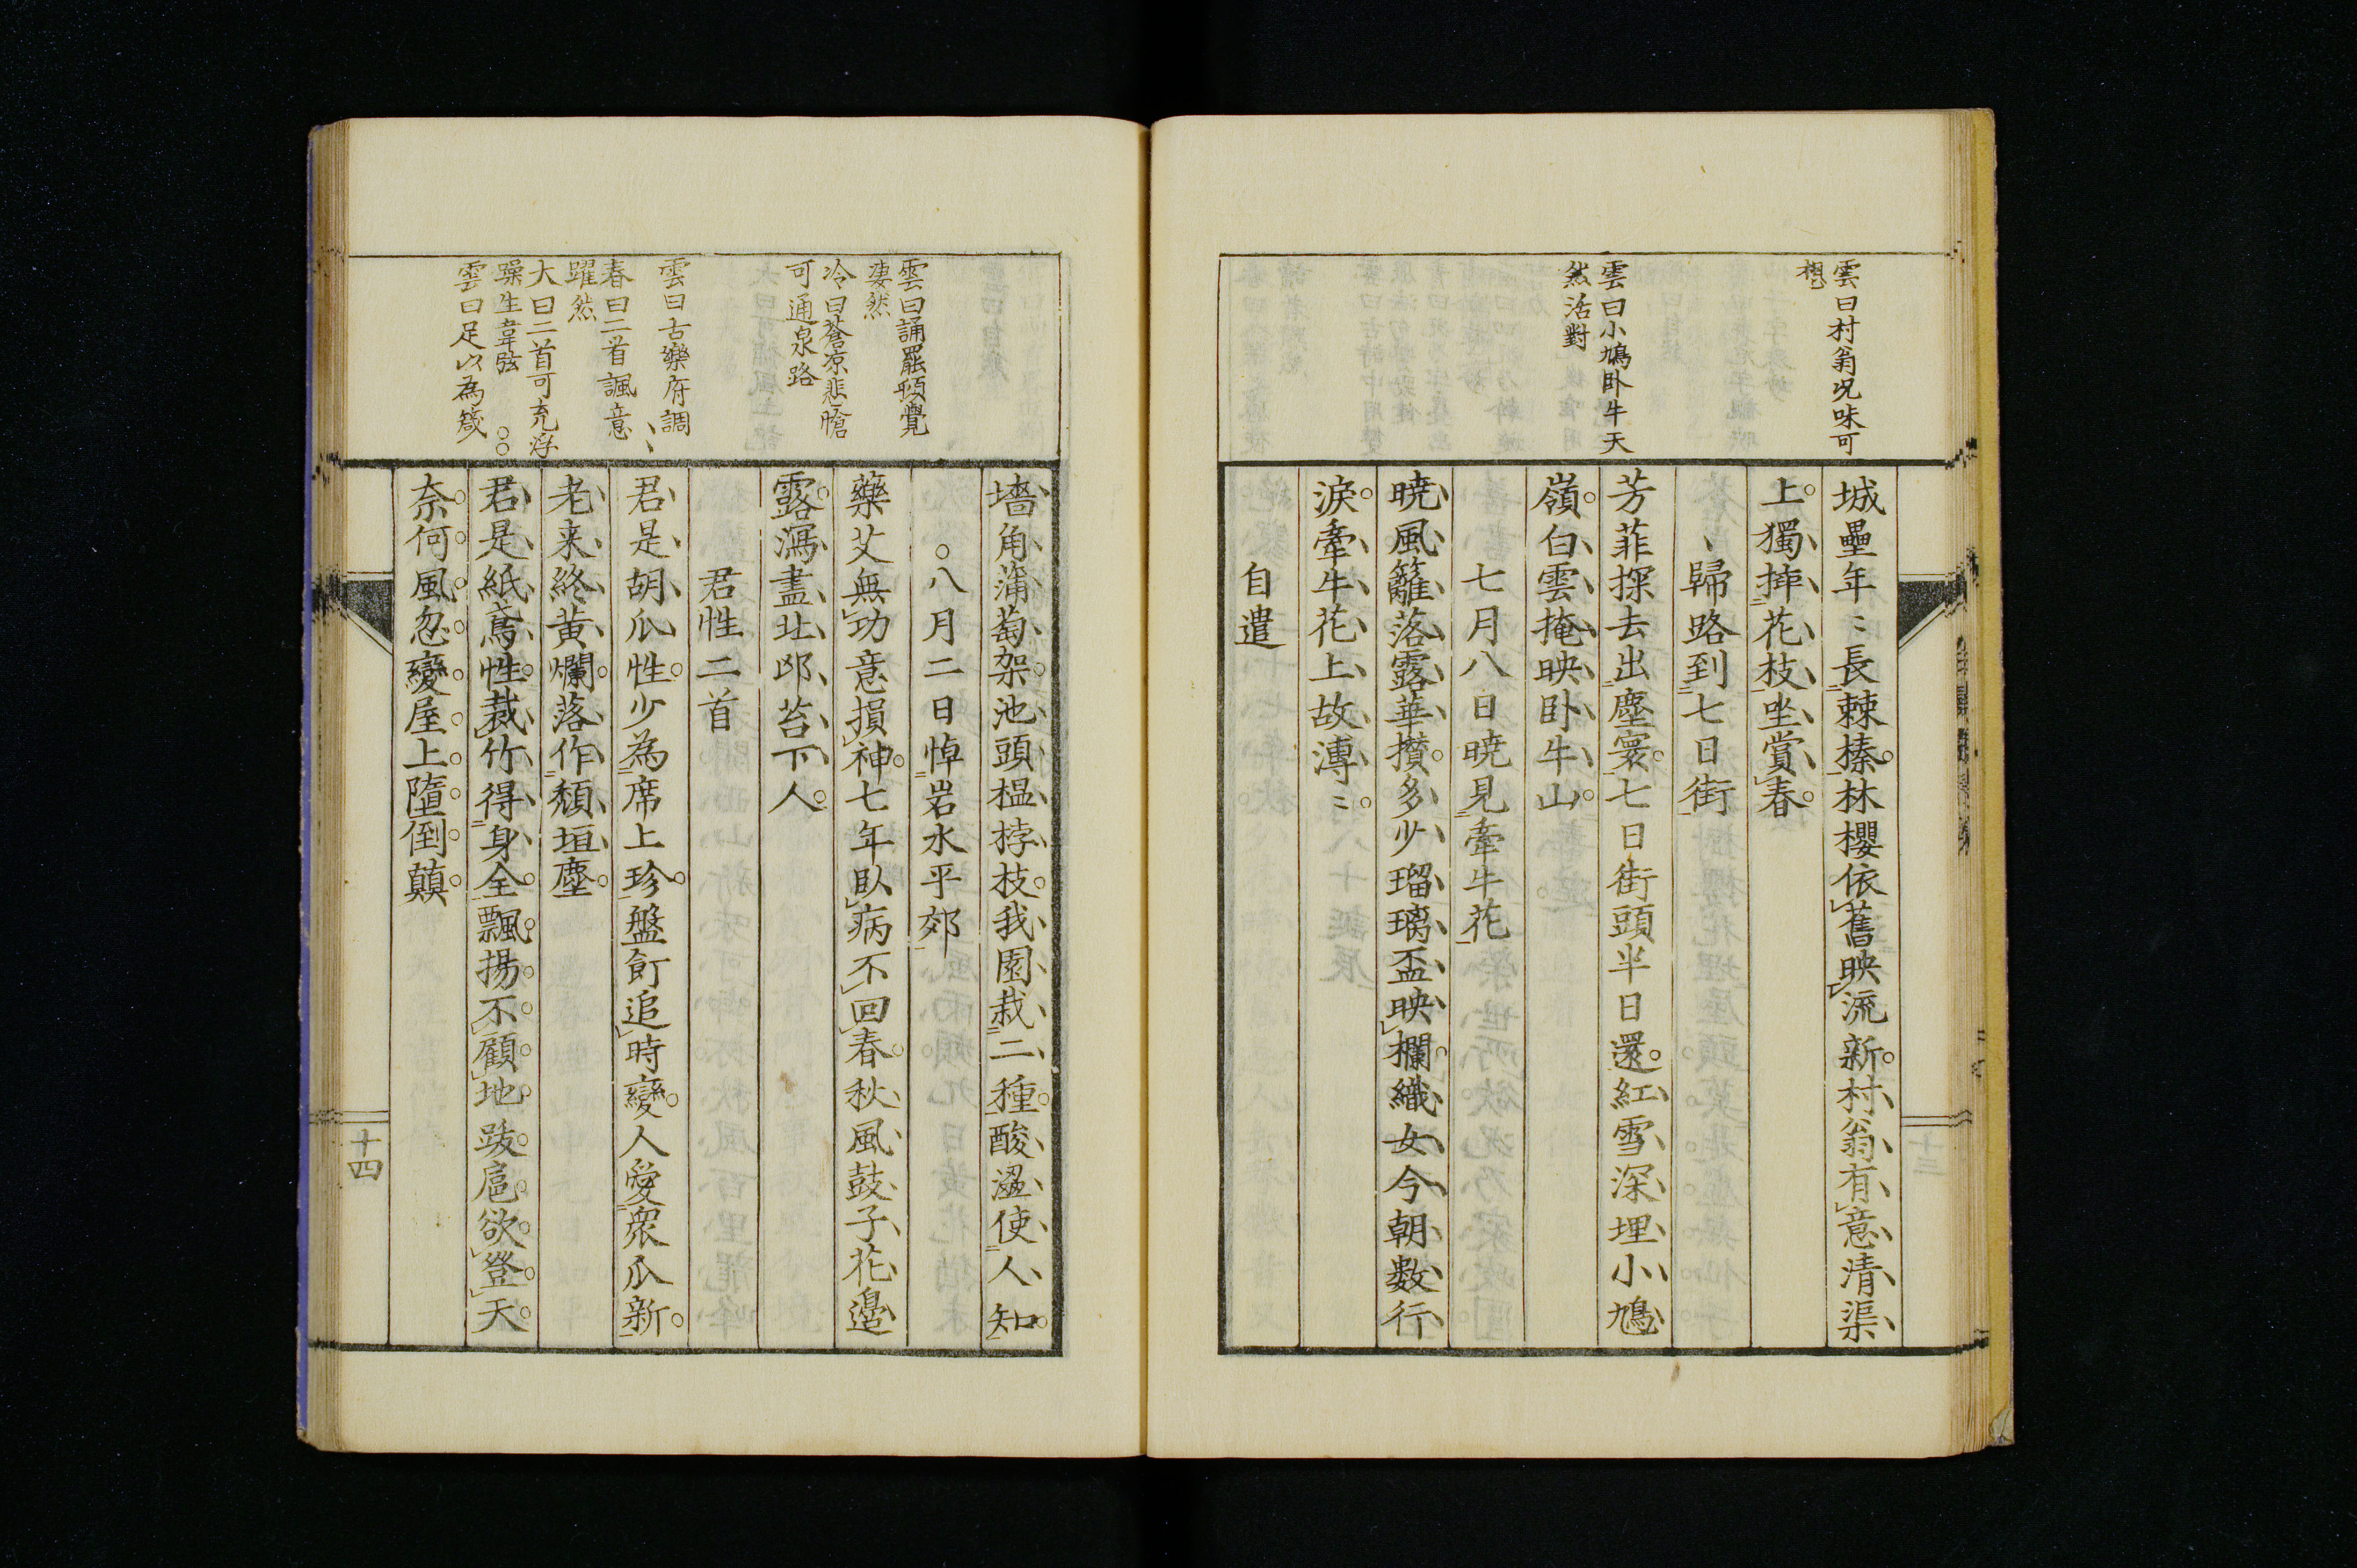 雲曰村翁況味可
想
雲曰小鳩卧牛天
然活對
城壘年〻長棘榛林櫻依舊映流新村翁有意清渠
上獨捽花枝坐賞春
歸路到七日街
芳菲探去出塵寰七日街頭半日還紅雪深埋小鳩
嶺白雲掩映卧牛山
七月八日曉見牽牛花
曉風籬落露華攅多少瑠璃盃映欄織女今朝數行
淚牽牛花上故漙〻
自遣
十三
雲曰誦罷頓覺
凄然
冷曰蒼凉悲愴
可通泉路
雲曰古樂府調
春曰二首諷意
躍然
大曰二首可充浮
躁生韋弦
雲曰足以為箴
墻角蒲萄架池頭榲桲枝我園栽二種酸澁使人知
八月二日悼岩水平郊
藥艾無功意損神七年臥病不回春秋風鼓子花邊
露瀉盡北邙苔下人
君性二首
君是胡瓜性少為席上珍盤飣追時變人愛衆瓜新
老来終黄爛落作頽垣塵
君是紙鳶性裁竹得身全飄揚不顧地跋扈欲登天
奈何風忽變屋上墮倒顛
十四